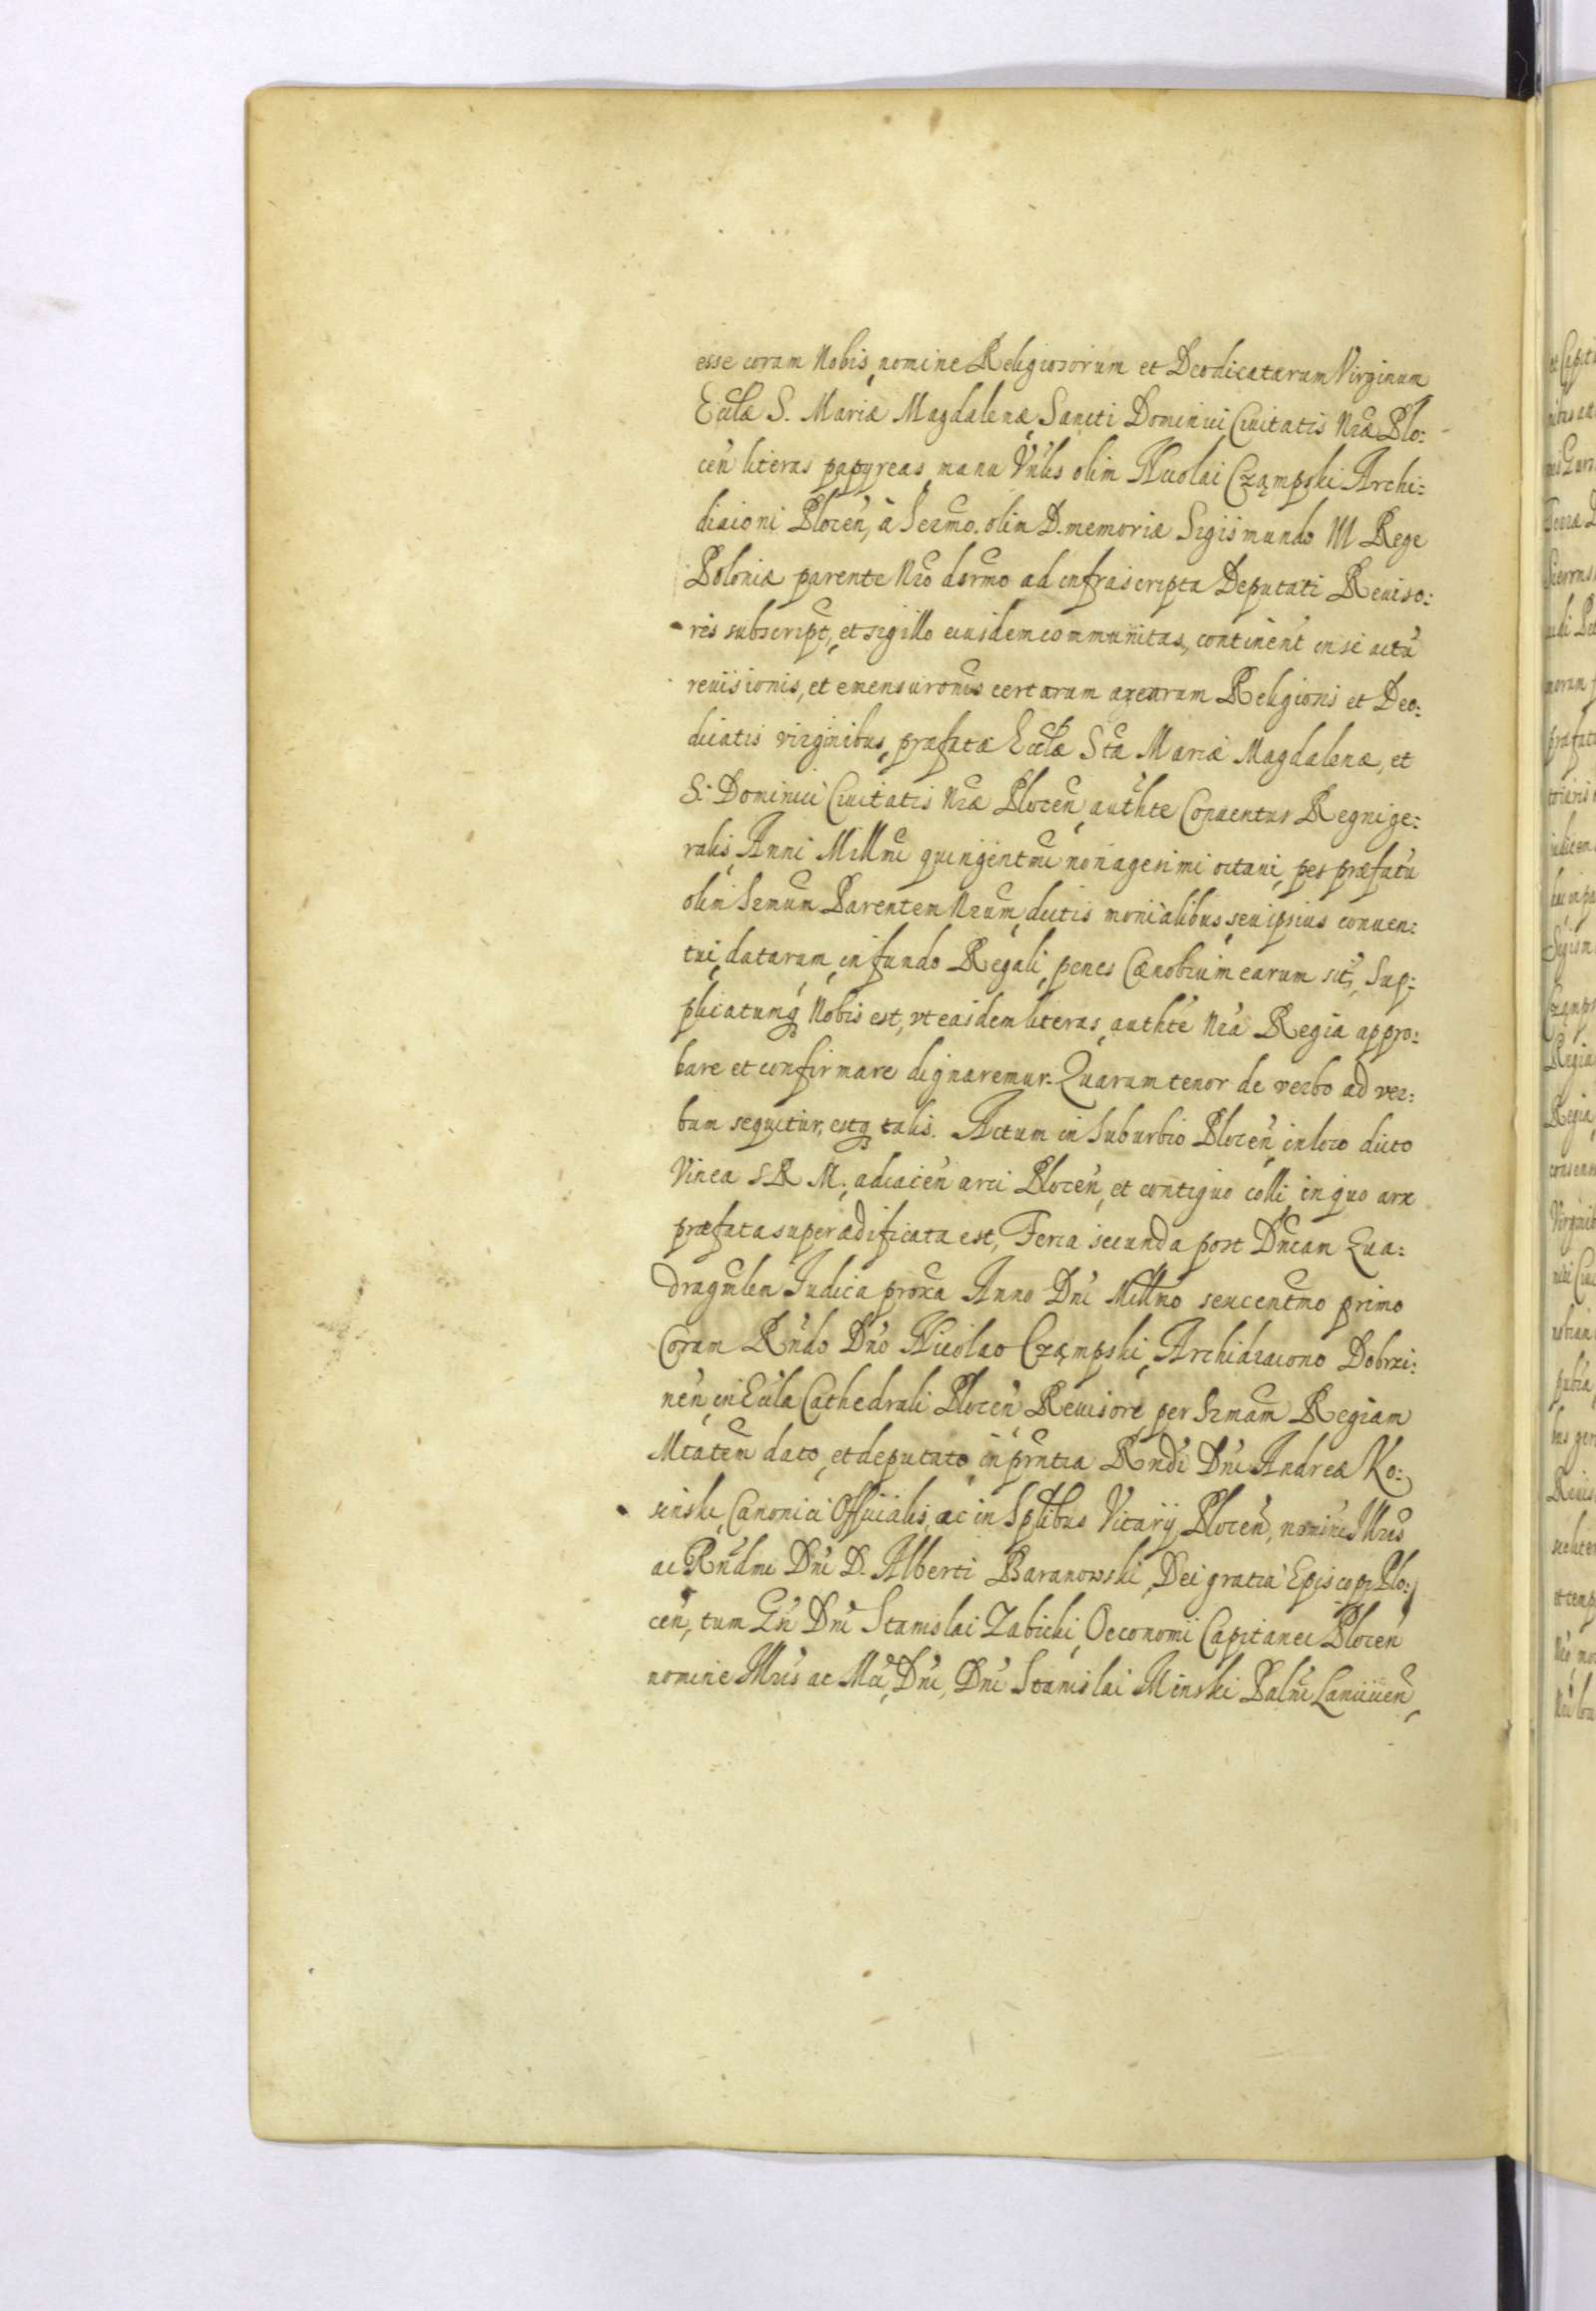 esse coram Nobis, nomine Religiosorum et Deodicatarum Virginum
Eccłæ S. Mariæ Magdalenæ, Sancti Dominici Ciuitatis Nræ Plo:
ceń literas papyreas, manu Vnlis olim Nicolai Cząmpski Archi:
diaconi Ploceń, à Sermo. olim D. memoriæ Sigismundo III Rege
Poloniæ parente Nro dsrmo ad infrascripta Deputati Reuiso:
ris subscript, et sigillo eiusdem communitas, continent in se actu
reuisionis, et emensurōnis certarum arearum Religiosis et Deo:
dicatis virginibus, præfatæ Ecclæ Stæ Mariæ Magdalenæ, et
S. Dominici Ciuitatis Nræ Plocen, authte Conuentus Regni ge:
ralis, Anni Millmi quingentmi nonagesimi octaui, per præfatu
olim Srmum Parentem Nrum, dictis monialibus, seu ipsius conuen:
tui, datarum, in fundo Regali, penes Cænobium earum sit, Sup:
plicatumq Nobis est, vt easdem literas, authte Nra Regia appro:
bare et confirmare dignaremur. Quarum tenor de verbo ad ver:
bum sequitur, estq talis. Actum in Suburbio Plocen, in loco dicto
Vinea S R M, adiacen arci Plocen, et contiguo colli, in quo arx
præfata superædificata est, Feria secunda post Dncam Qua:
dragmlen Judica proxa Anno Dni Millno sexcentmo primo
Coram Rndo Dno Nicolao Cząmpski, Archidiacono Dobrzi:
nen, in Eccla Cathedrali Plocen Reuisore, per Srmam Regiam
Mtatem dato, et deputato, in prntia Rndi Dni Andreæ Ko:
sinski, Canonici Officialis, ac in Splibus Vicarij Plocen, nomine Illris
ac Rndmi Dni D. Alberti Baranowski, Dei gratia Episcopi Plo:
cen, tum Gn Dni Stanislai Zabicki, Oeconomi Capitanei Plocen
nomine Illris ac Mci, Dni, Dni Stanislai Minski Palni Lanciien,